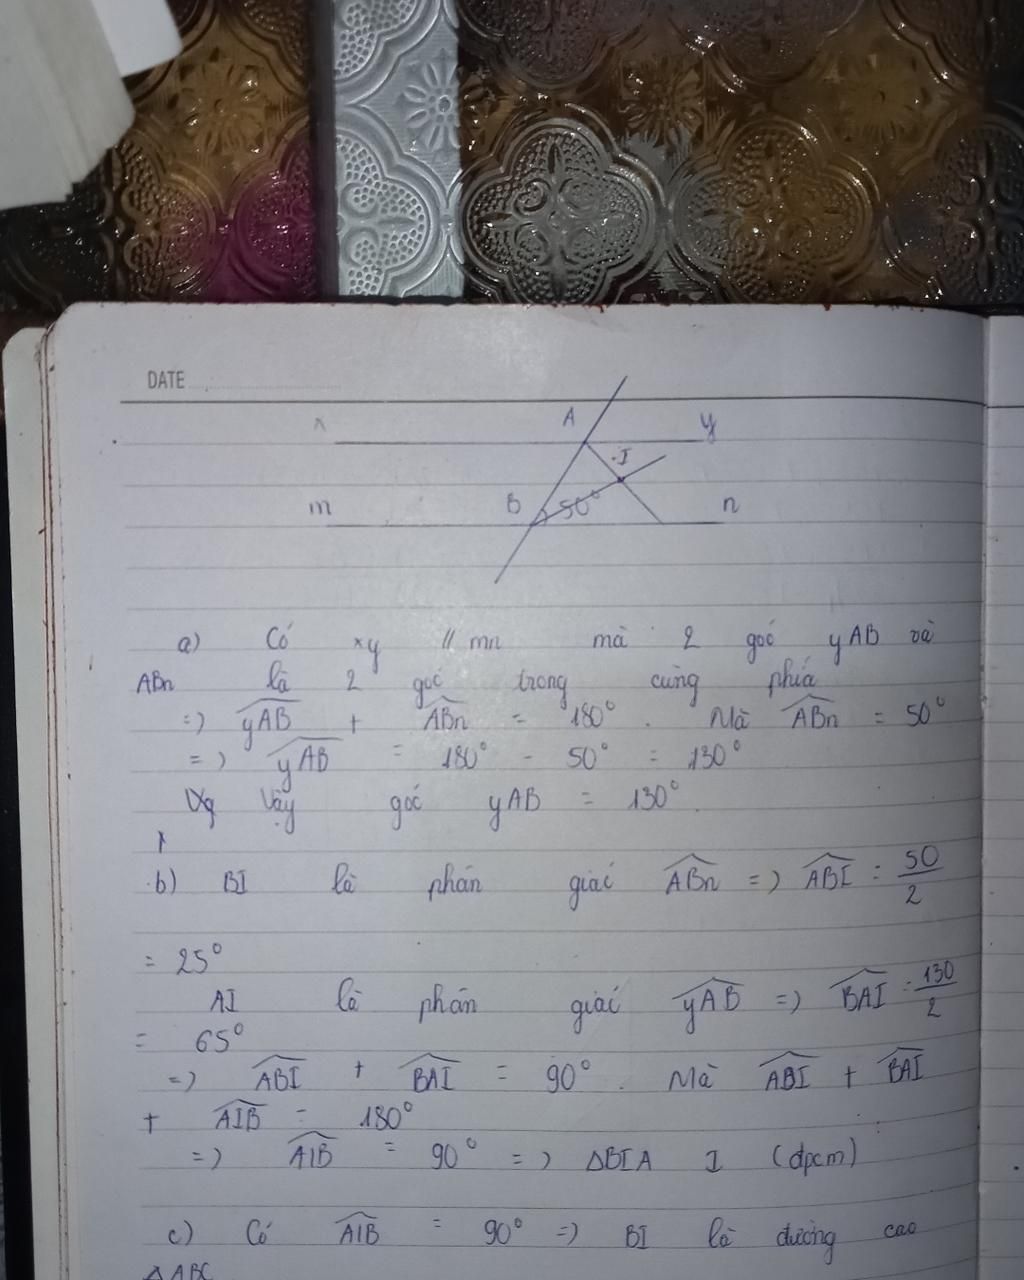 DATE
x A y
I
m B 50° n
a) Có xy // mn mà 2 goć yAB và
ABn là 2 goć trong cùng phía
=) yAB + ABn = 180°. Mà ABn = 50°
=) yAB = 180° - 50° = 130°
Vậy goć yAB = 130°.
b) BI là phân giać ABn =) ABI = 50/2
= 25°
AI là phân giać yAB =) BAI = 130/2
= 65°
=) ABI + BAI = 90°. Mà ABI + BAI
+ AIB = 180°
=) AIB = 90° =) ΔBIA I (dpcm)
c) Có AIB = 90° =) BI là đường cao
ΔABC